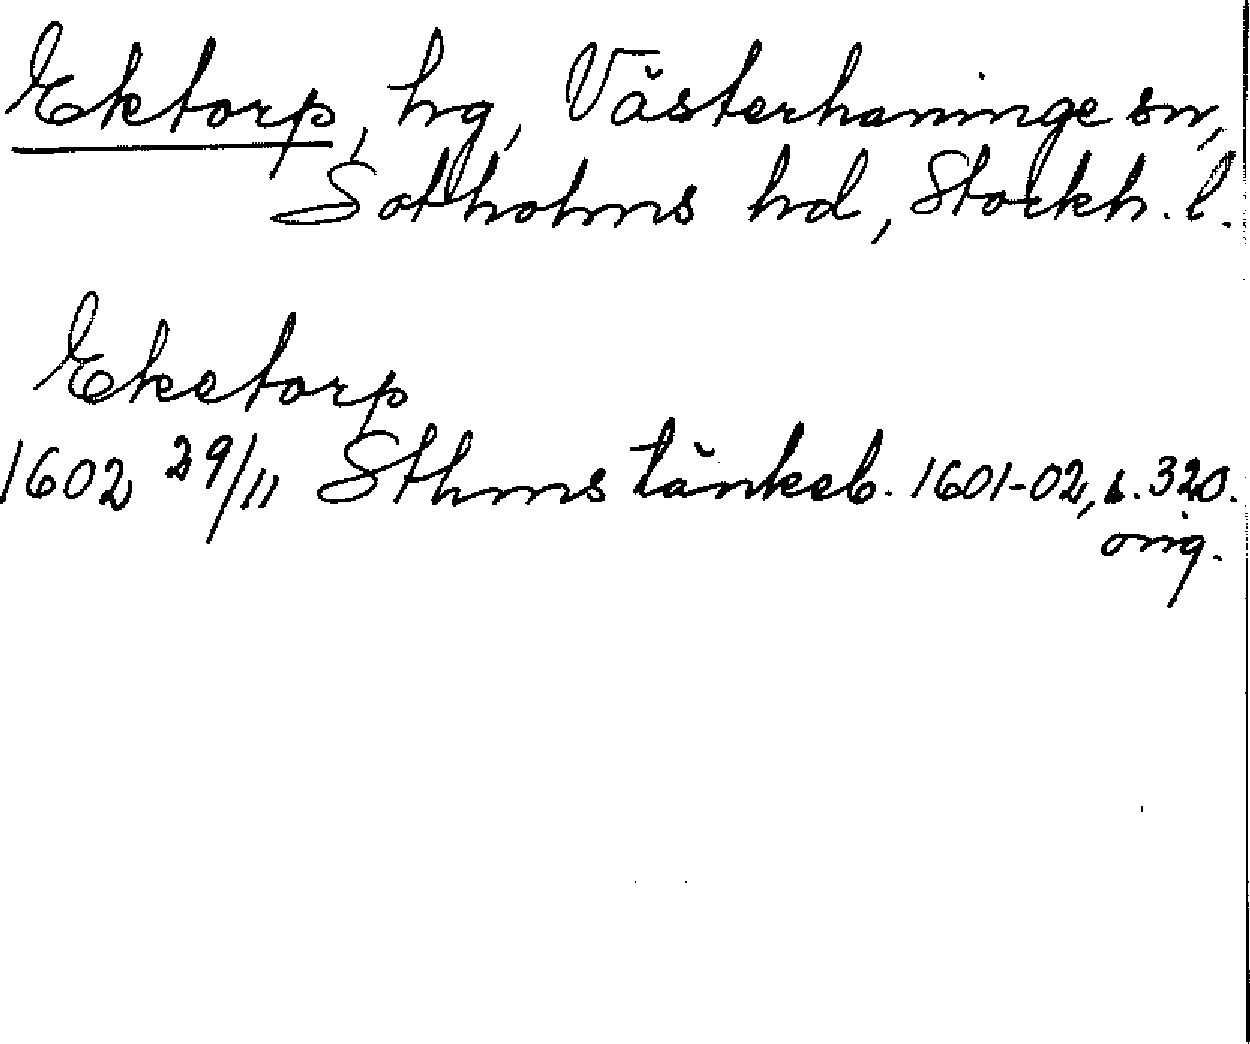 Ektorp, hg, Västerhaninge sn,
Sotholms hd, Stockh. l.
Eketorp
1602 29/11 Sthms tänkeb. 1601-02, s. 320.
orig.